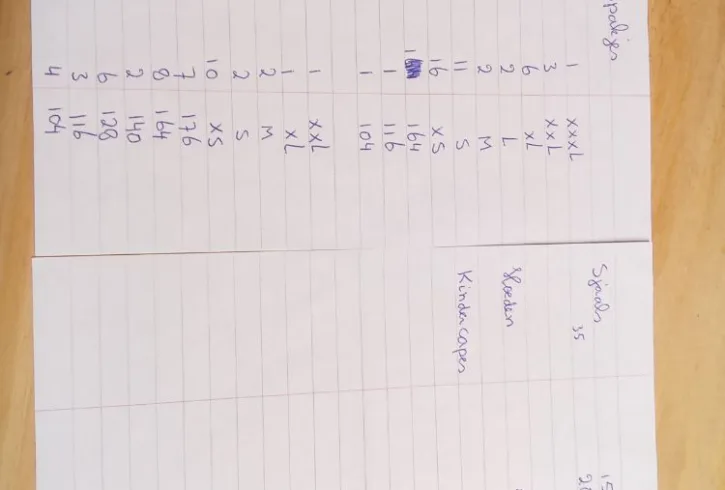 ppakjes
1 XXXL
3 XXL
6 XL
2 L
2 M
11 S
16 XS
1 164
1 116
1 104
1 XXL
1 XL
2 M
2 S
10 XS
7 176
8 164
2 140
6 128
3 116
4 104
Sjaals
35
Hoeden
Kindercapes